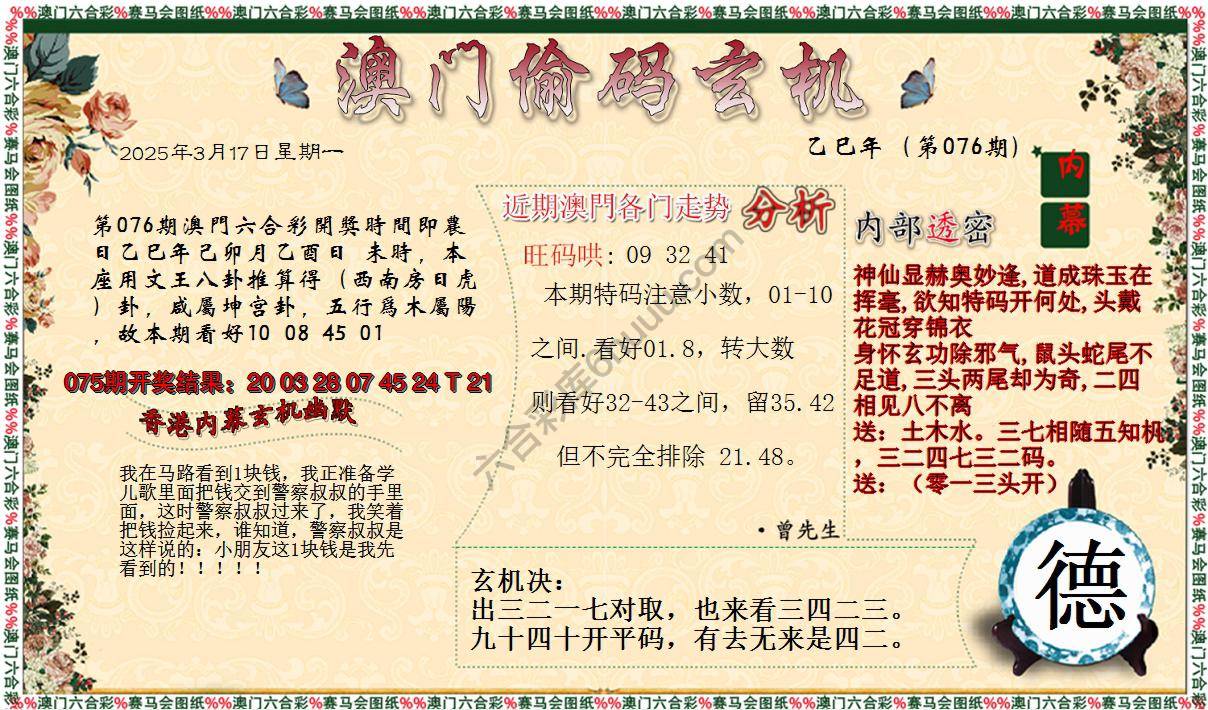 %%澳门六合彩%赛马会图纸%%澳门六合彩%赛马会图纸%%澳门六合彩%赛马会图纸%%澳门六合彩%赛马会图纸%%澳门六合彩%赛马会图纸%%澳门六合彩%赛马会图纸%%
澳门偷码玄机
2025年3月17日星期一
乙巳年（第076期）
内幕
第076期澳門六合彩開獎時間即農
日乙巳年己卯月乙酉日 未時，本
座用文王八卦推算得（西南房日虎
）卦，咸屬坤宫卦，五行爲木屬陽
，故本期看好10 08 45 01
075期开奖结果：20 03 28 07 45 24 T 21
香港内幕玄机幽默
我在马路看到1块钱，我正准备学
儿歌里面把钱交到警察叔叔的手里
面，这时警察叔叔过来了，我笑着
把钱捡起来，谁知道，警察叔叔是
这样说的：小朋友这1块钱是我先
看到的！！！！！
近期澳門各门走势 分析
旺码哄: 09 32 41
本期特码注意小数，01-10
之间.看好01.8，转大数
则看好32-43之间，留35.42
但不完全排除 21.48。
·曾先生
内部透密
神仙显赫奥妙逢,道成珠玉在
挥毫,欲知特码开何处,头戴
花冠穿锦衣
身怀玄功除邪气,鼠头蛇尾不
足道,三头两尾却为奇,二四
相见八不离
送：土木水。三七相随五知机
，三二四七三二码。
送：（零一三头开）
玄机决：
出三二一七对取，也来看三四二三。
九十四十开平码，有去无来是四二。
德
%%澳门六合彩%赛马会图纸%%澳门六合彩%赛马会图纸%%澳门六合彩%赛马会图纸%%澳门六合彩%赛马会图纸%%澳门六合彩%赛马会图纸%%澳门六合彩%赛马会图纸%%